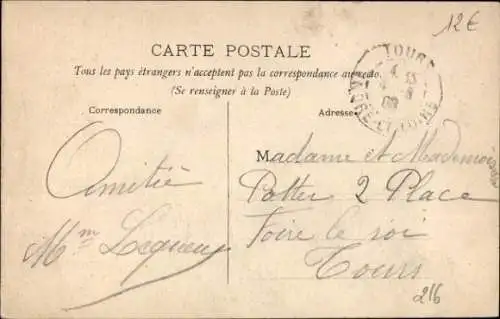 12€
CARTE POSTALE
Tous les pays étrangers n'acceptent pas la correspondance au recto.
(Se renseigner à la Poste)
Correspondance
Adresse
TOURS
INDRE-ET-LOIRE
Amitié
Madame et Mademois
2 Place
Foire le roi
Tours
216